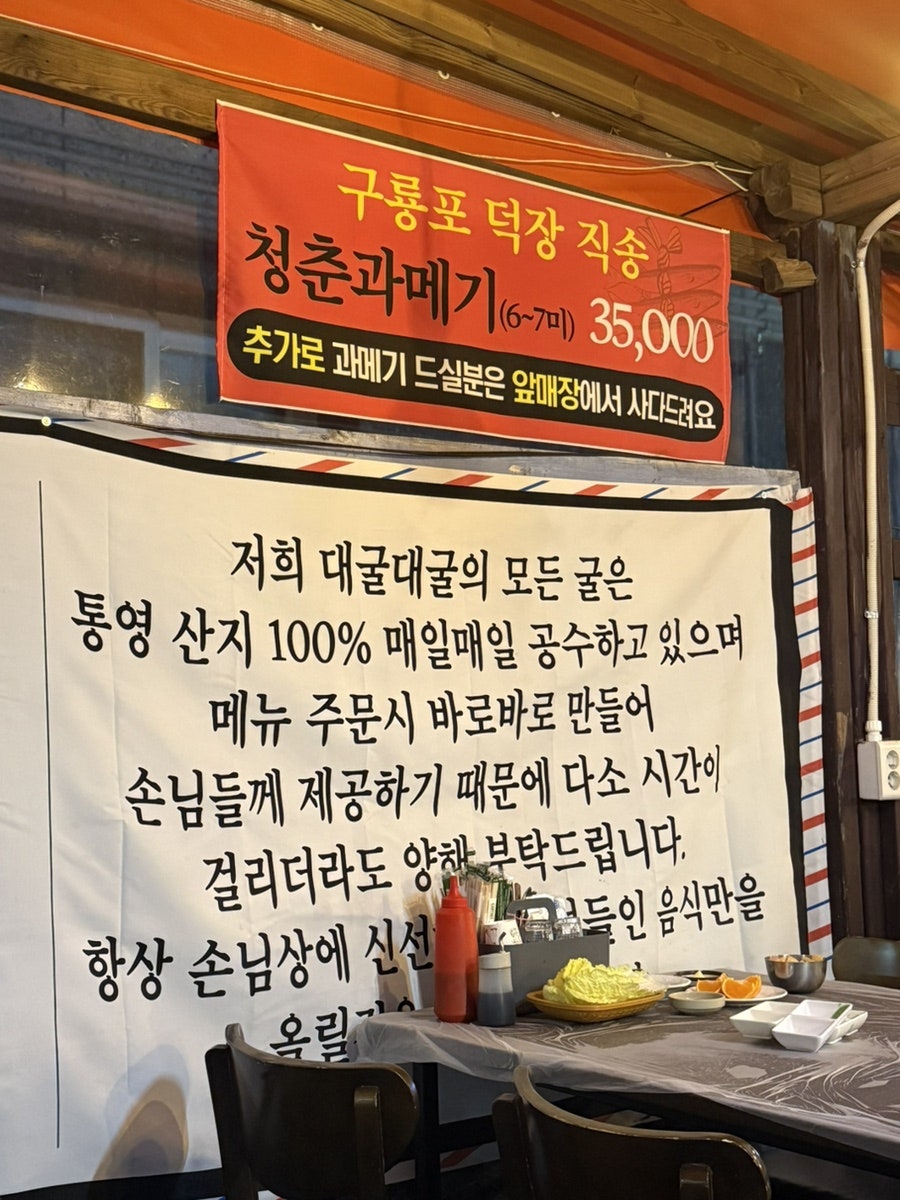 구룡포 덕장 직송
청춘과메기(6~7미) 35,000
추가로 과메기 드실분은 앞매장에서 사다드려요
저희 대굴대굴의 모든 굴은
통영 산지 100% 매일매일 공수하고 있으며
메뉴 주문시 바로바로 만들어
손님들께 제공하기 때문에 다소 시간이
걸리더라도 양해 부탁드립니다.
항상 손님상에 음식만을